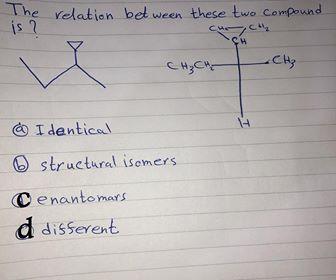 The relation between these two compound
is?
CH₂ CH₂
CH
CH₃CH₂ CH₃
H
ⓐ Identical
ⓑ structural isomers
ⓒ enantomars
d different